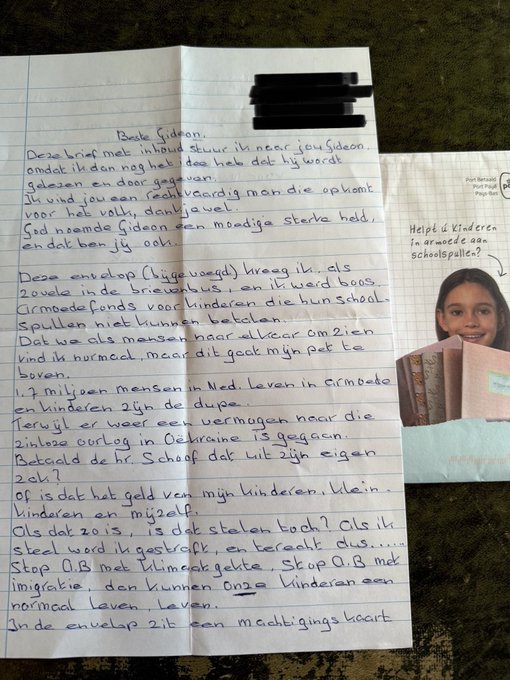 Beste Gideon.
Deze brief met inhoud stuur ik naar jou Gideon.
omdat ik dan nog het idee heb dat hij wordt
gelezen en door gegeven.
Ik vind jou een rechtvaardig man die opkomt
voor het volk, dank jawel.
God noemde Gideon een moedige sterke held,
en dat ben jij ook.
Deze envelop (bijgevoegd) kreeg ik, als
zovele in de brievenbus, en ik werd boos.
Armoedefonds voor kinderen die hun school-
spullen niet kunnen betalen.
Dat we als mensen naar elkaar omzien
vind ik normaal, maar dit gaat mijn pet te
boven.
1.7 miljoen mensen in Ned. leven in armoede
en kinderen zijn de dupe.
Terwijl er weer een vermogen naar die
zinloze oorlog in Oekraine is gegaan.
Betaald de hr. Schoof dat uit zijn eigen
zak?
Of is dat het geld van mijn kinderen, klein-
kinderen en mijzelf.
Als dat zo is, is dat stelen toch? Als ik
steel word ik gestraft, en terecht dus......
Stop A.B met klimaatgekte, Stop A.B met
imigratie, dan kunnen onze kinderen een
normaal leven, leven.
In de envelop zit een machtigings kaart
Port Betaald
Port Payé
Pays-Bas
Helpt ú kinderen
in armoede aan
schoolspullen?